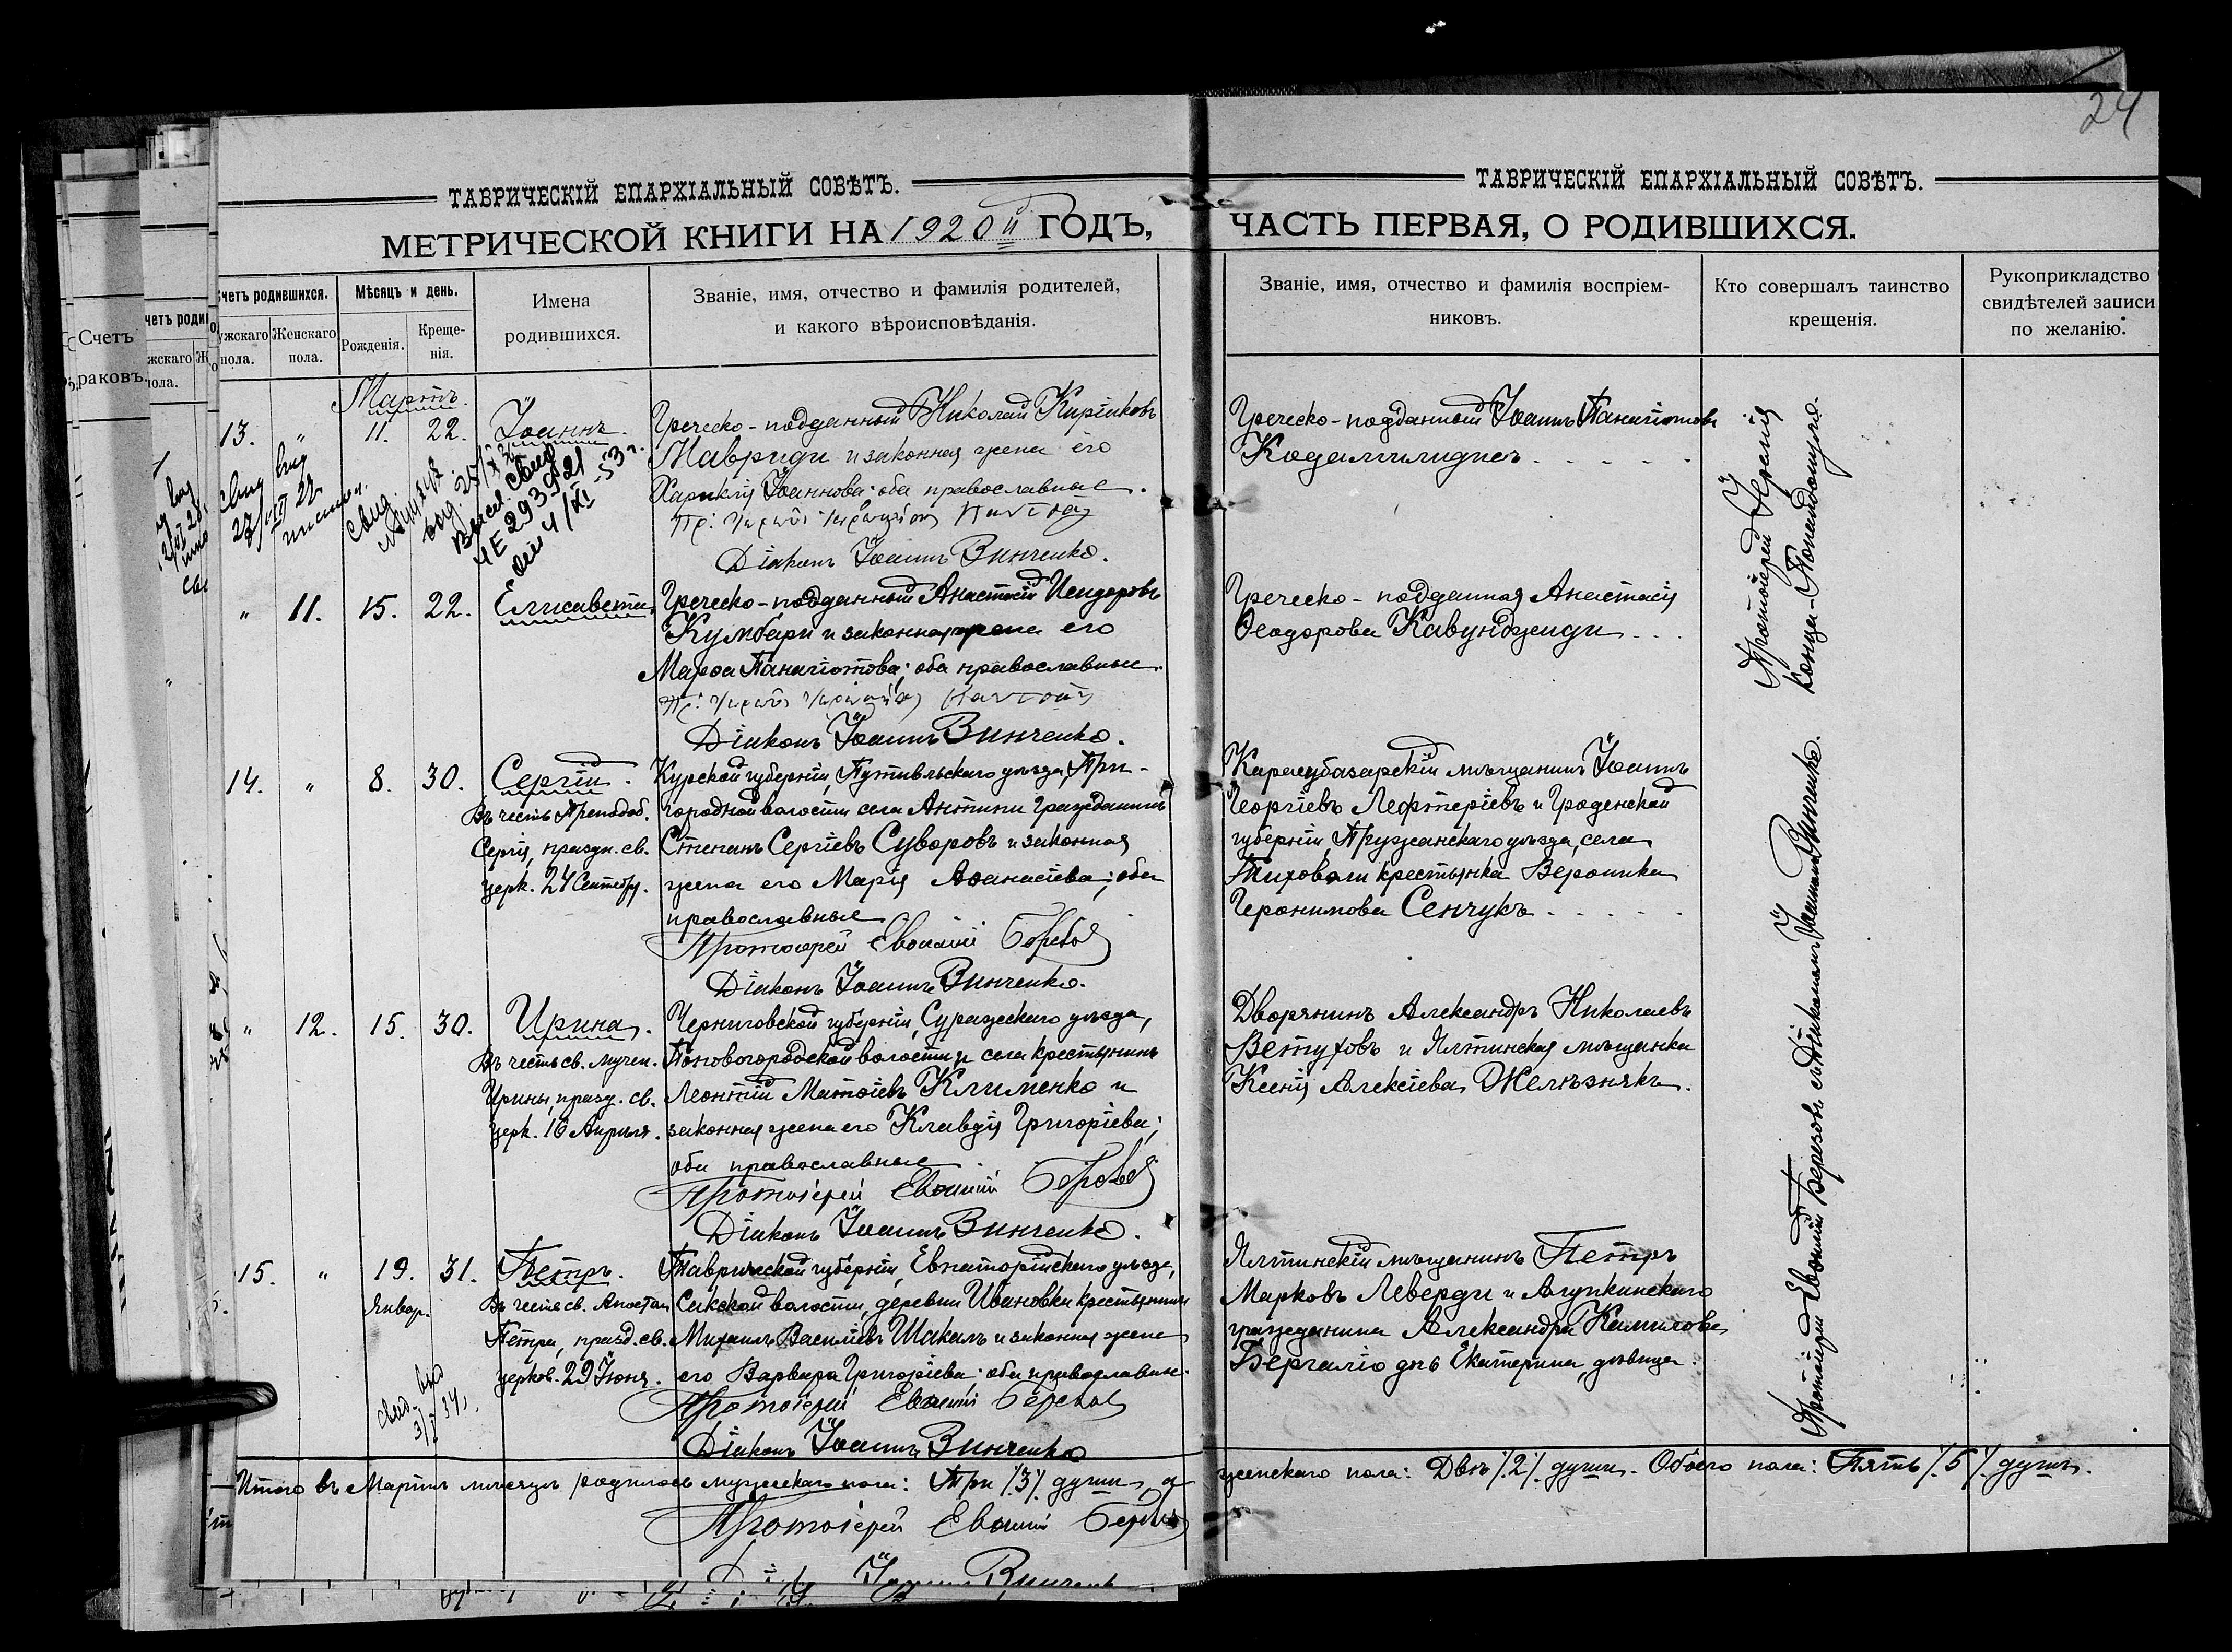 24
ТАВРИЧЕСКІЙ ЕПАРХІАЛЬНЫЙ СОВѢТЪ.
МЕТРИЧЕСКОЙ КНИГИ НА 1920й ГОДЪ,
Счетъ родившихся.
Мѣсяцъ и день.
Имена родившихся.
Званіе, имя, отчество и фамилія родителей,
и какого вѣроисповѣданія.
Мужскаго пола.
Женскаго пола.
Рожденія.
Креще-
нія.
Мартъ.
13. " 11. 22. Іоаннъ.
Греческо-подданный Николай Киріаковъ
Мавриди и законная жена его
Хариклія Іоаннова; оба православные.
Діаконъ Іоаннъ Винченко.
" 11. 15. 22. Елисавета.
Греческо-подданный Анастасій Исидоровъ
Кумбари и законная жена его
Марѳа Панагіотова; оба православные.
Діаконъ Іоаннъ Винченко.
14. " 8. 30. Сергій.
Въ честь Преподоб.
Сергія, праздн. св.
церк. 24 Сентябр.
Курской губерніи, Путивльскаго уѣзда, При-
городной волости села Антыки гражданинъ
Степанъ Сергіевъ Суворовъ и законная
жена его Марія Аѳанасіева; оба
православные
Протоіерей Евѳимій
Діаконъ Іоаннъ Винченко.
" 12. 15. 30. Ирина.
Въ честь св. мучен.
Ирины, празд. св.
церк. 16 Апрѣля.
Черниговской губерніи, Суражскаго уѣзда,
волости и села крестьянинъ
Леонтій Матѳіевъ Клименко и
законная жена его Клавдія Григоріева;
оба православные
Протоіерей Евѳимій
Діаконъ Іоаннъ Винченко.
15. " 19. 31. Петръ.
Январ.
Въ честь св. Апостол
Петра, празд. св.
церков. 29 Іюня.
Таврической губерніи, Евпаторійскаго уѣзда,
Сакской волости, деревни Ивановки крестьянинъ
Михаилъ Василіевъ Шакалъ и законная жена
его Варвара Григоріева; оба православные.
Протоіерей Евѳимій
Діаконъ Іоаннъ Винченко
Итого въ Мартѣ мѣсяцѣ родилось мужескаго пола: Три /3/ души, а
Протоіерей Евѳимій
ТАВРИЧЕСКІЙ ЕПАРХІАЛЬНЫЙ СОВѢТЪ.
ЧАСТЬ ПЕРВАЯ, О РОДИВШИХСЯ.
Званіе, имя, отчество и фамилія воспріем-
никовъ.
Кто совершалъ таинство
крещенія.
Рукоприкладство
свидѣтелей записи
по желанію.
Греческо-подданный Іоаннъ Панагіотовъ
Греческо-подданная Анастасія
Ѳеодорова Кавунджиди
Карасубазарскій мѣщанинъ Іоаннъ
Георгіевъ Лефтеріевъ и Гродненской
губерніи, Пружанскаго уѣзда, села
Тиховоли крестьянка Вероника
Іеронимова Сенчукъ
Дворянинъ Александръ Николаевъ
Ветуховъ и Ялтинская мѣщанка
Ксенія Алексіева Желѣзнякъ.
Ялтинскій мѣщанинъ Петръ
Марковъ Леверди и Алупкинскаго
гражданина Александра Камилова
дочь Екатерина, дѣвица.
Протоіерей Іеремія
Протоіерей Евѳимій Березовъ съ Діакономъ Іоанномъ Винченко.
женскаго пола: Двѣ /2/ души. Обоего пола: Пять /5/ душъ.